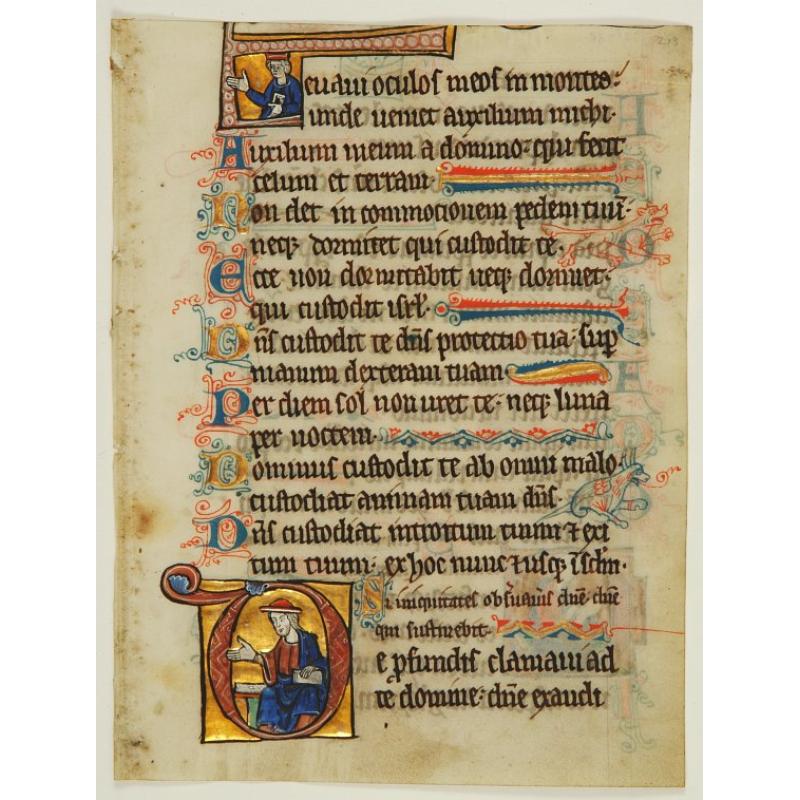 Leuaui oculos meos in montes:
unde ueniet auxilium michi.
Auxilium meum a domino: qui fecit
celum et terram.
Non det in commotionem pedem tuū.
neqꝫ dormitet qui custodit te.
Ecce non dormitabit neqꝫ dormiet.
qui custodit isrl̄.
Dn̄s custodit te dn̄s protectio tua: sup
manum dexteram tuam.
Per diem sol non uret te. neqꝫ luna
per noctem.
Dominus custodit te ab omni malo.
custodiat animam tuam dn̄s.
Dn̄s custodiat introitum tuum ⁊ exi
tum tuum: ex hoc nunc ⁊ usqꝫ ī sclm̄.
Si iniquitates obs̄uaūis dn̄e. dn̄e
quis sustinebit.
De ꝓfundis clamaui ad
te domine: dn̄e exaudi